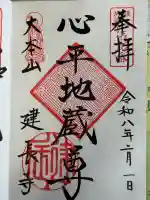 奉拝
令和八年二月一日
心平地蔵尊
大本山
建長寺